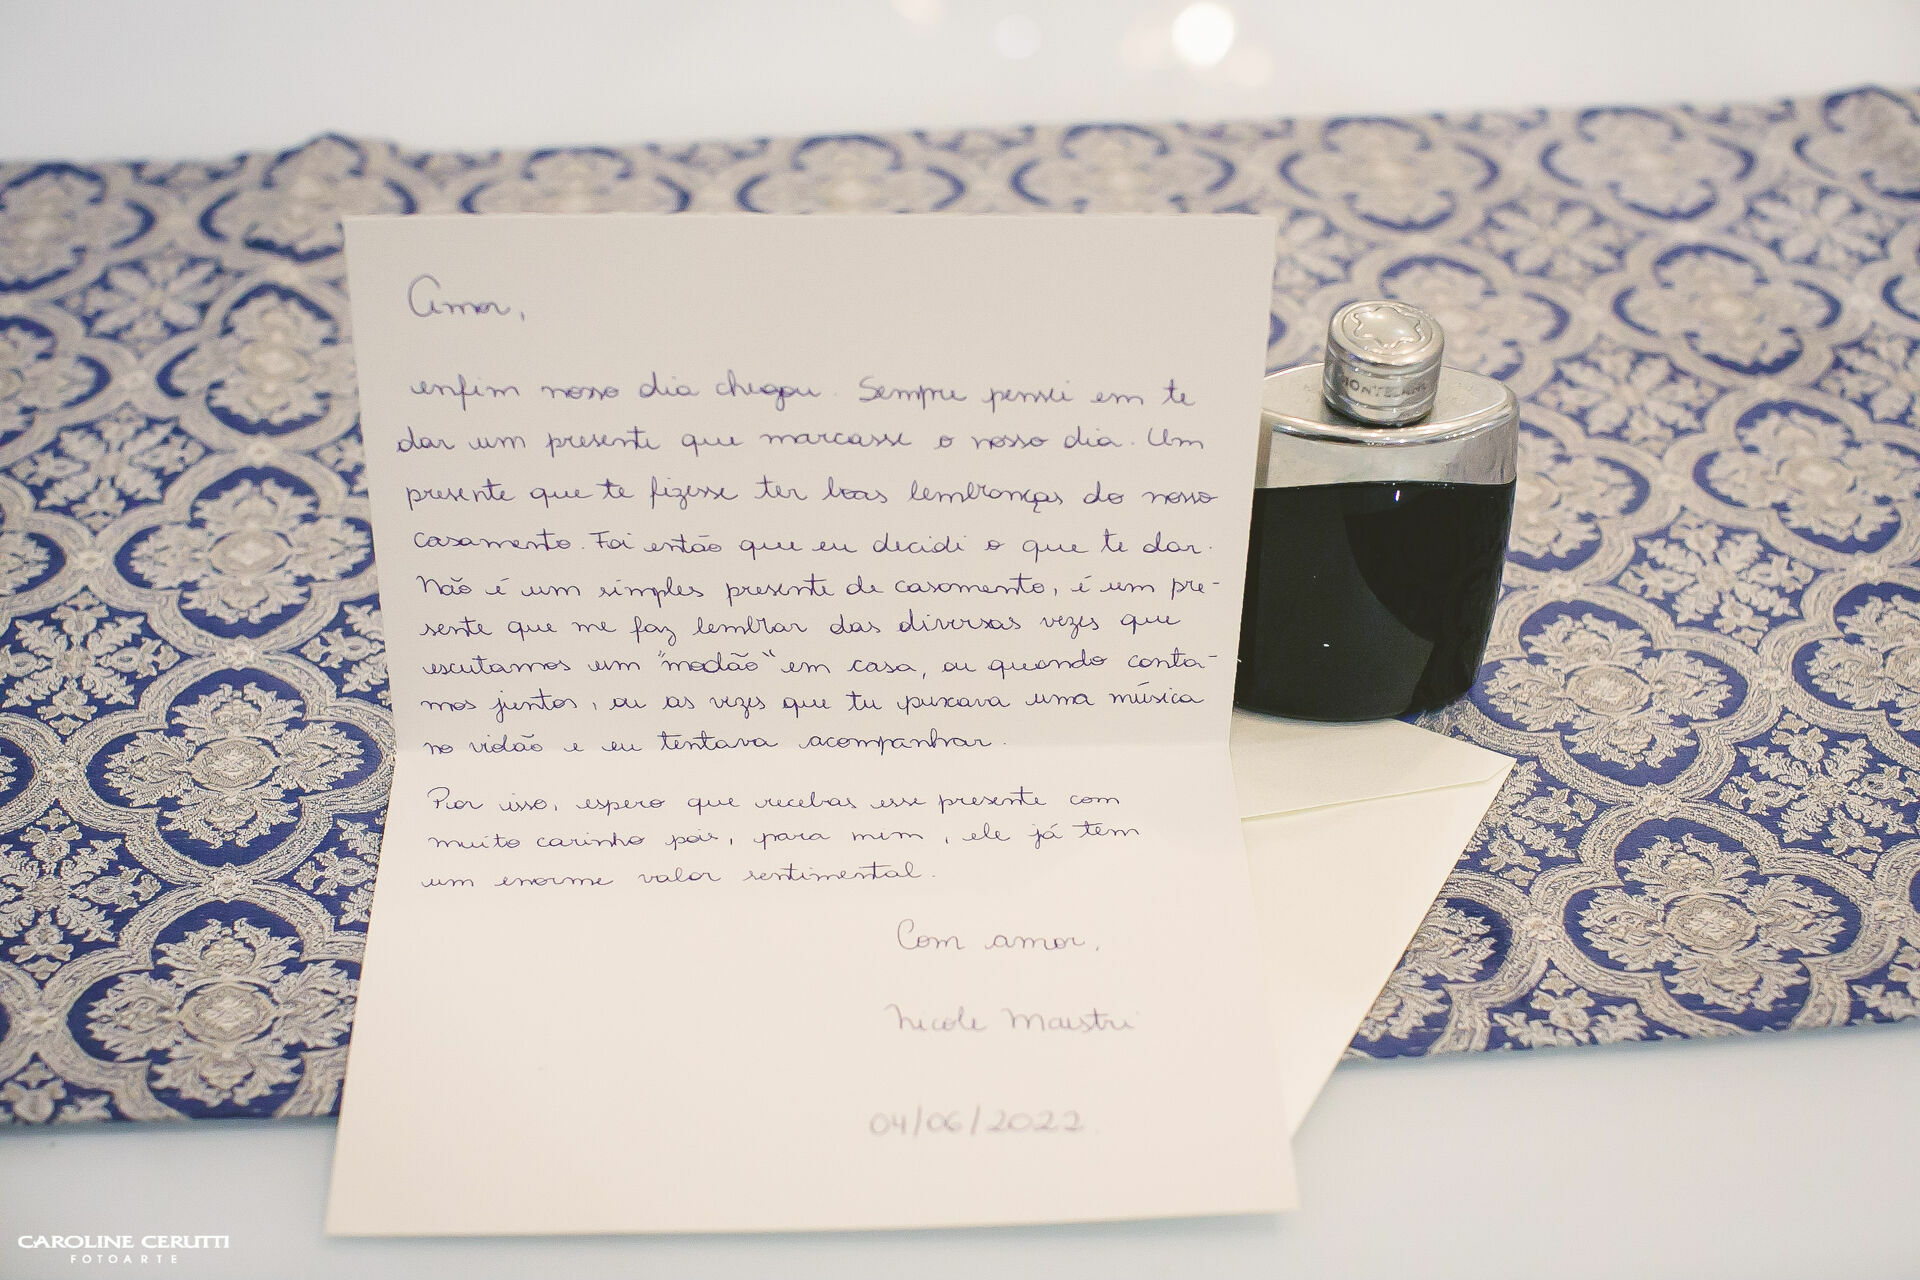 Amor,
enfim nosso dia chegou. Sempre pensei em te
dar um presente que marcasse o nosso dia. Um
presente que te fizesse ter boas lembranças do nosso
casamento. Foi então que eu decidi o que te dar.
Não é um simples presente de casamento, é um pre-
sente que me faz lembrar das diversas vezes que
escutamos um "modão" em casa, ou quando canta-
mos juntos, ou as vezes que tu puxava uma música
no violão e eu tentava acompanhar.
Por isso, espero que recebas esse presente com
muito carinho pois, para mim, ele já tem
um enorme valor sentimental.
Com amor,
Nicole Maestri
04/06/2022.
MONTBLANC
CAROLINE CERUTTI
FOTOARTE